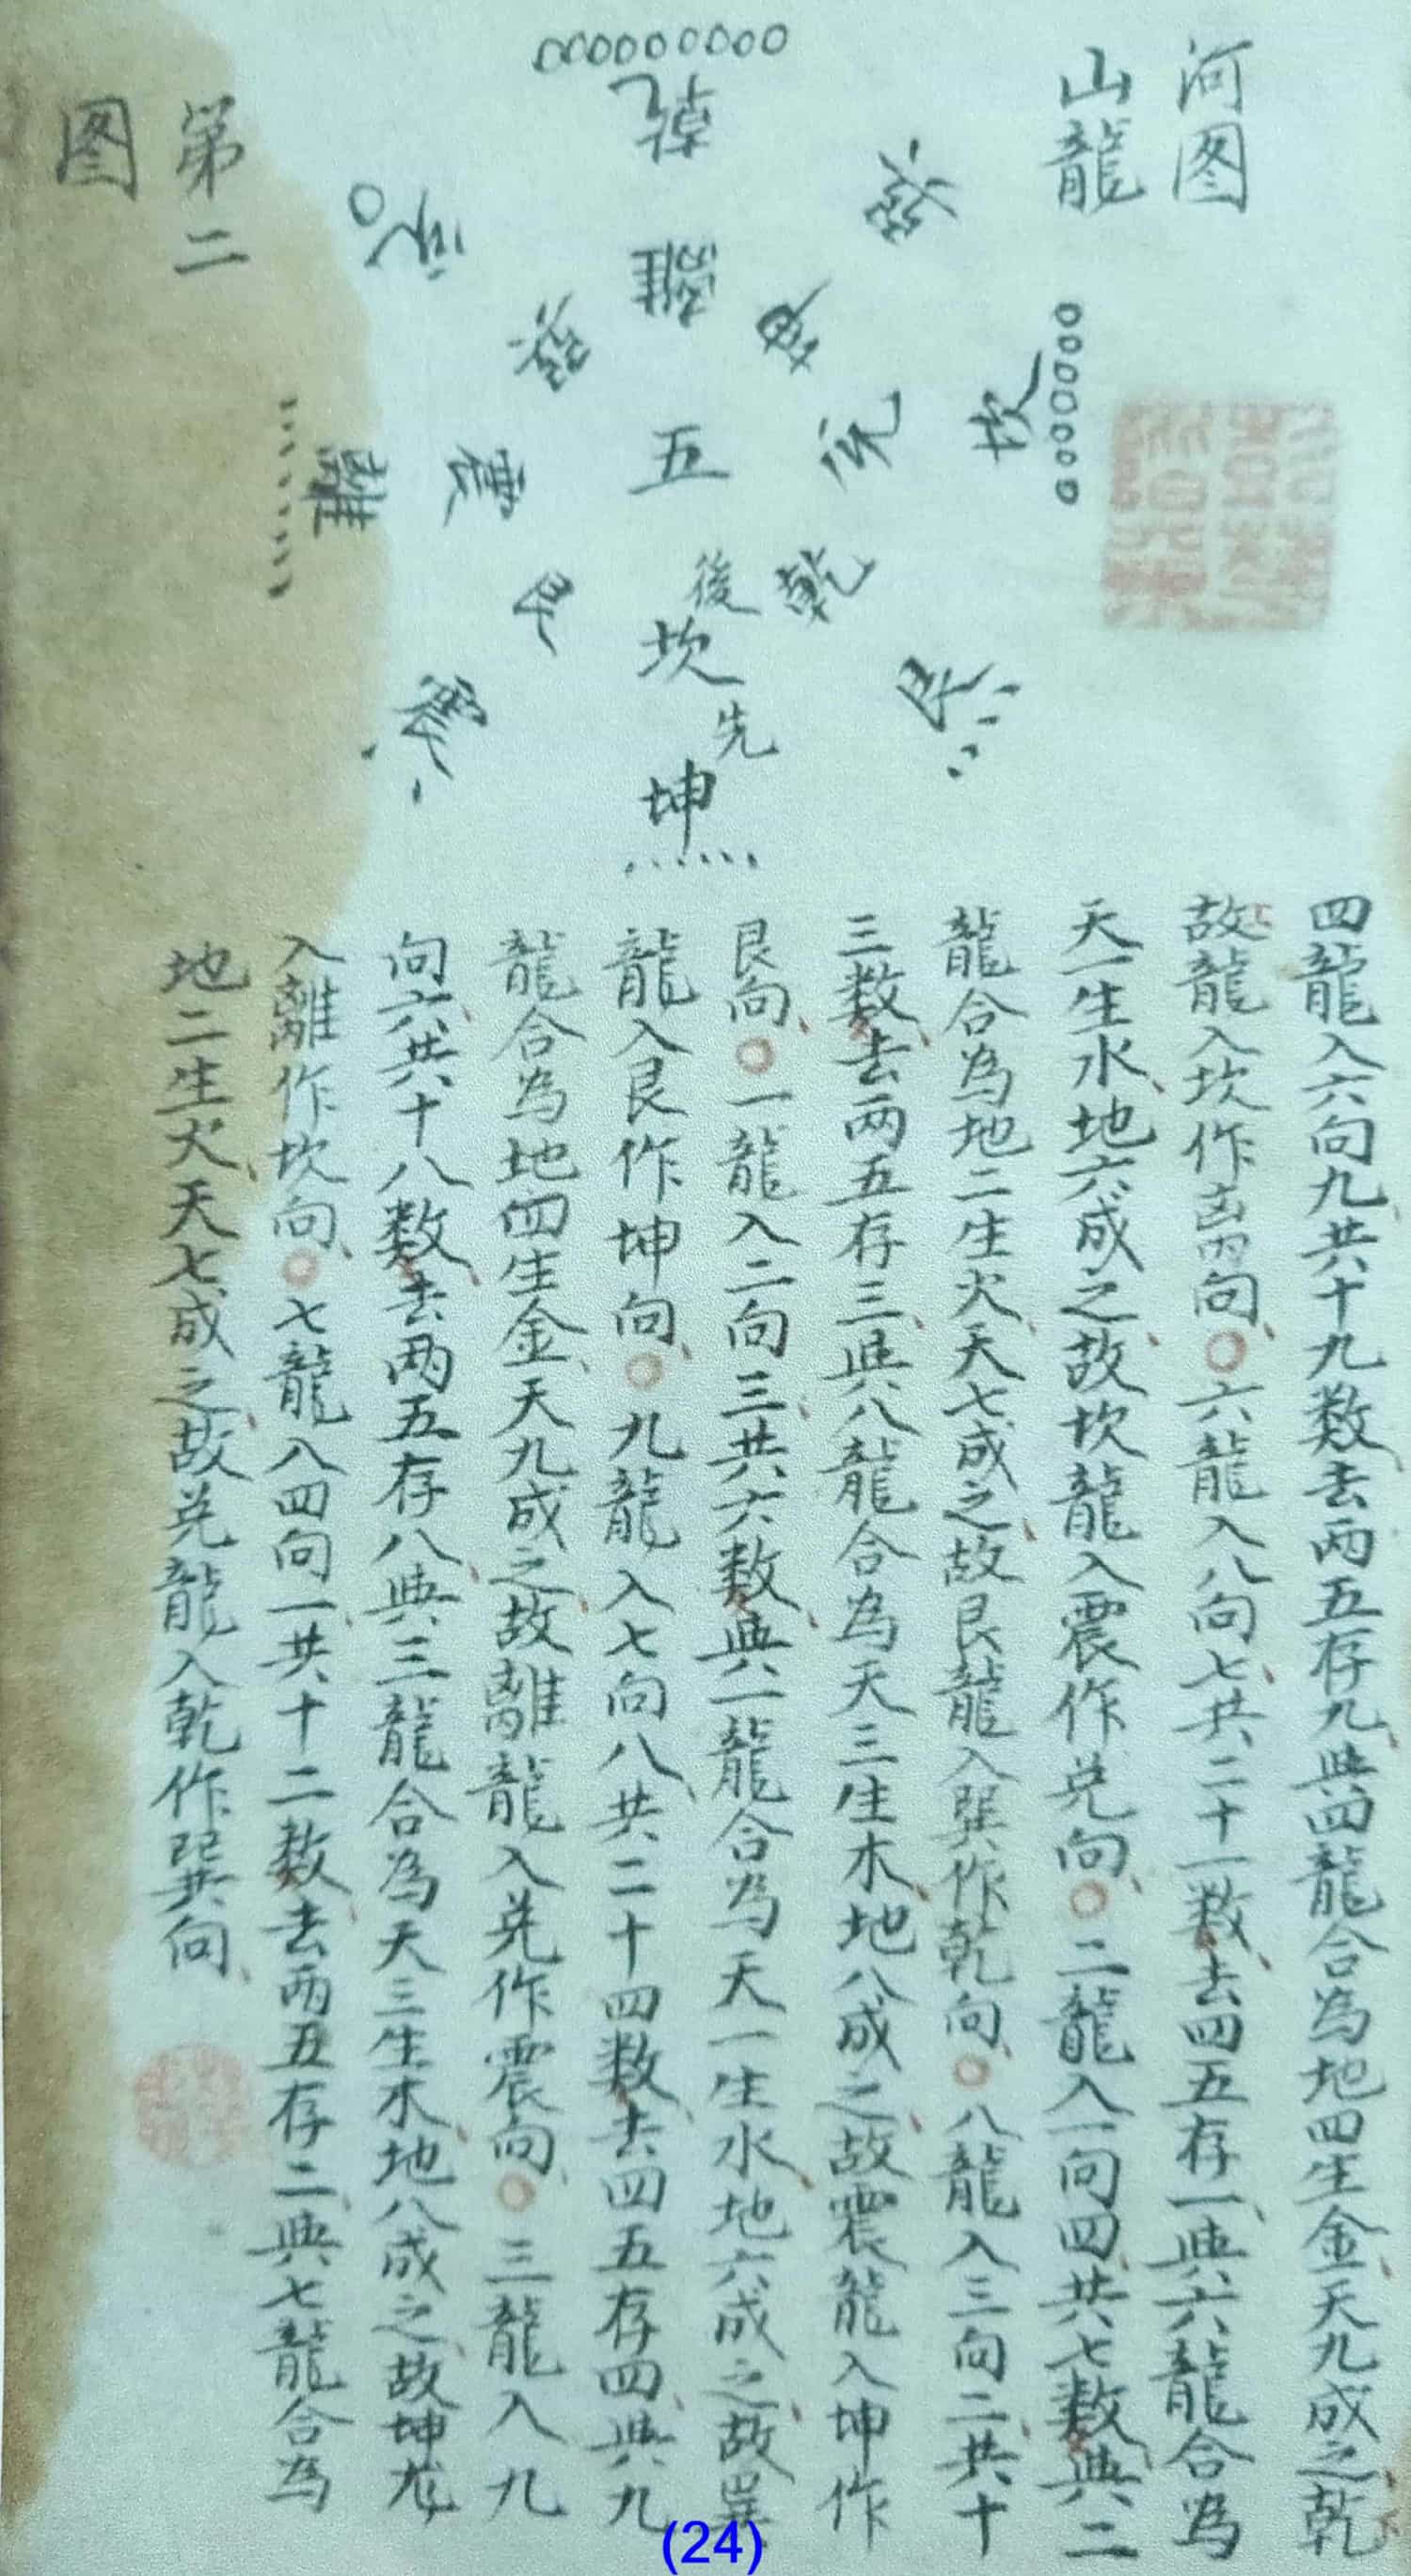 河图
山龍
乾
兌
巽
離
坤
坎
巽
五
兌
離
震
後
乾
艮
坎
艮
先
震
坤
第二
图
四龍入六向九共十九数去两五存九與四龍合為地四生金天九成之乾
故龍入坎作离向○六龍入八向七共二十一数去四五存一與六龍合為
天一生水地六成之故坎龍入震作兌向○二龍入一向四共七数與二
龍合為地二生火天七成之故艮龍入巽作乾向○八龍入三向二共十
三数去两五存三與八龍合為天三生木地八成之故震龍入坤作
艮向○一龍入二向三共六数與一龍合為天一生水地六成之故巽
龍入艮作坤向○九龍入七向八共二十四数去四五存四與九
龍合為地四生金天九成之故離龍入兌作震向○三龍入九
向六共十八数去两五存八與三龍合為天三生木地八成之故坤龙
入離作坎向○七龍入四向一共十二数去两五存二與七龍合為
地二生火天七成之故兌龍入乾作巽向
(24)